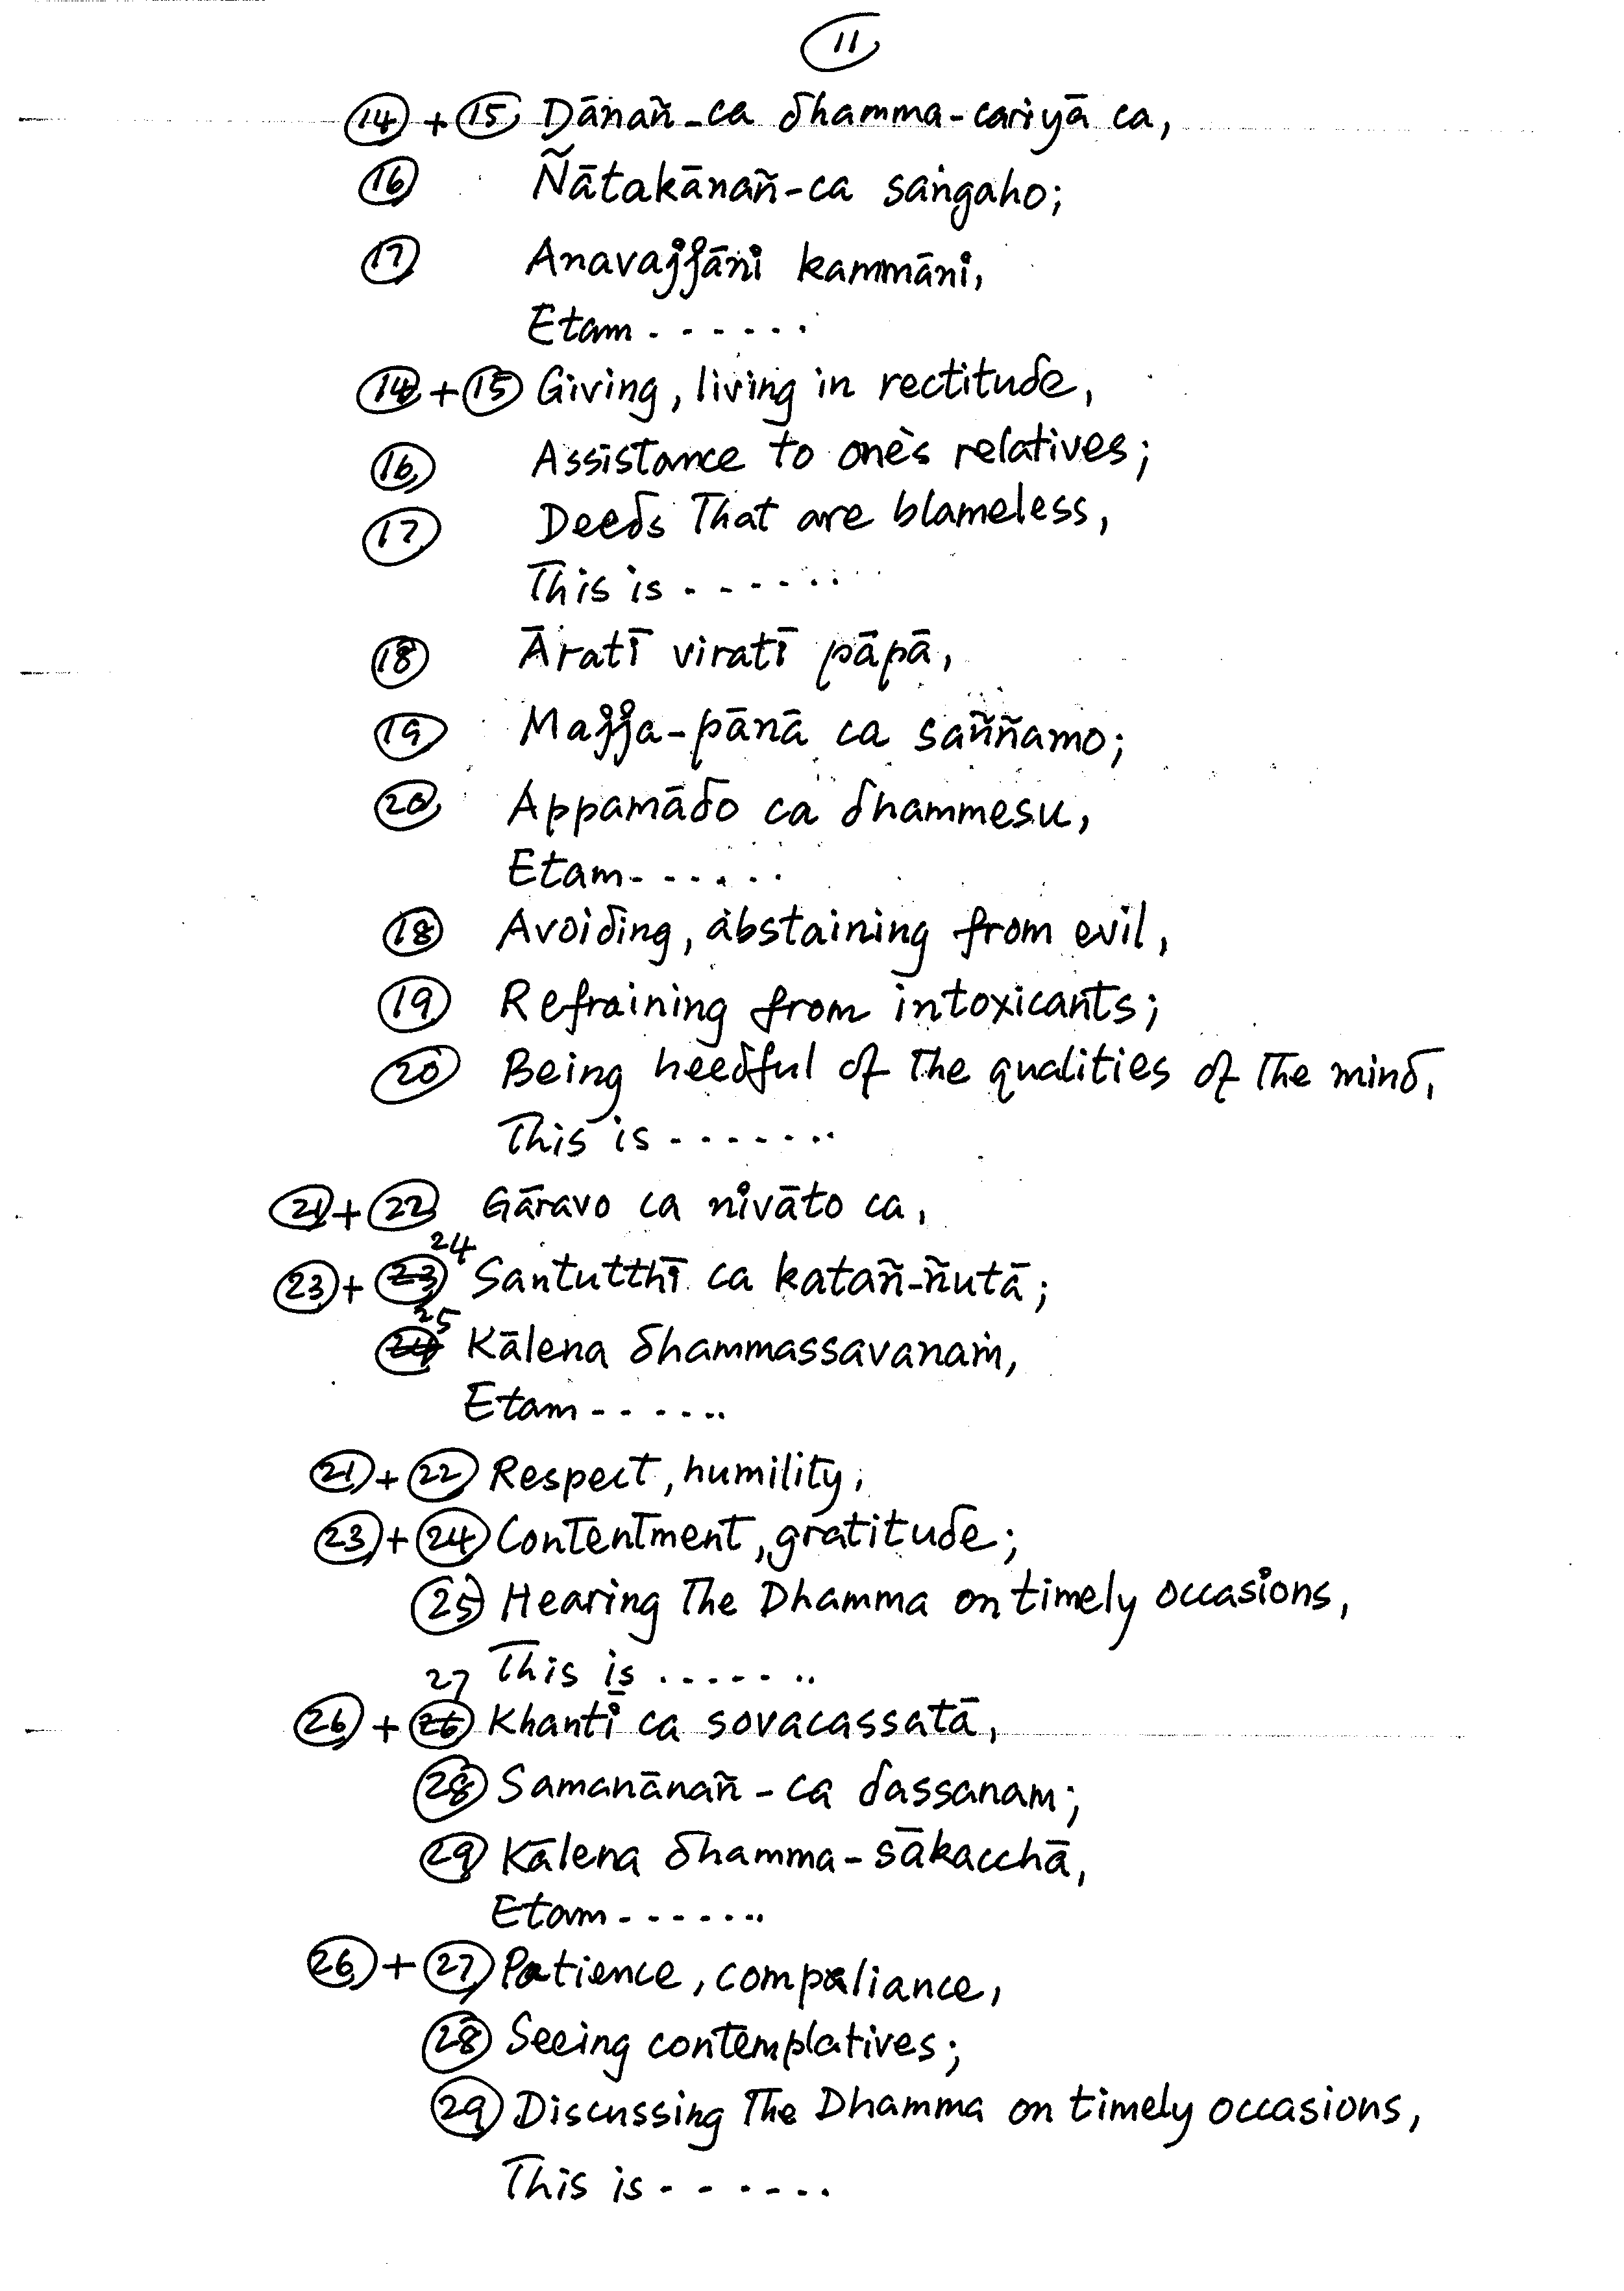 11
14 + 15 Dānañ-ca dhamma-cariyā ca,
16 Ñātakānañ-ca saṅgaho;
17 Anavajjāni kammāni,
Etam . - - - - - .
14 + 15 Giving, living in rectitude,
16 Assistance to one's relatives;
17 Deeds that are blameless,
This is - - - - - - -
18 Āratī viratī pāpā,
19 Majja-pānā ca saññamo;
20 Appamādo ca dhammesu,
Etam - - - - - -
18 Avoiding, abstaining from evil,
19 Refraining from intoxicants;
20 Being heedful of the qualities of the mind,
This is - - - - - - -
21 + 22 Gāravo ca nivāto ca,
23 + 24 Santutthī ca katañ-ñutā;
25 Kālena dhammassavanaṁ,
Etam - - - - - -
21 + 22 Respect, humility,
23 + 24 Contentment, gratitude;
25 Hearing the Dhamma on timely occasions,
This is - - - - - - -
26 + 27 Khantī ca sovacassatā,
28 Samanānañ-ca dassanam;
29 Kālena dhamma-sākacchā,
Etam - - - - - - -
26 + 27 Patience, compliance,
28 Seeing contemplatives;
29 Discussing the Dhamma on timely occasions,
This is - - - - - - -